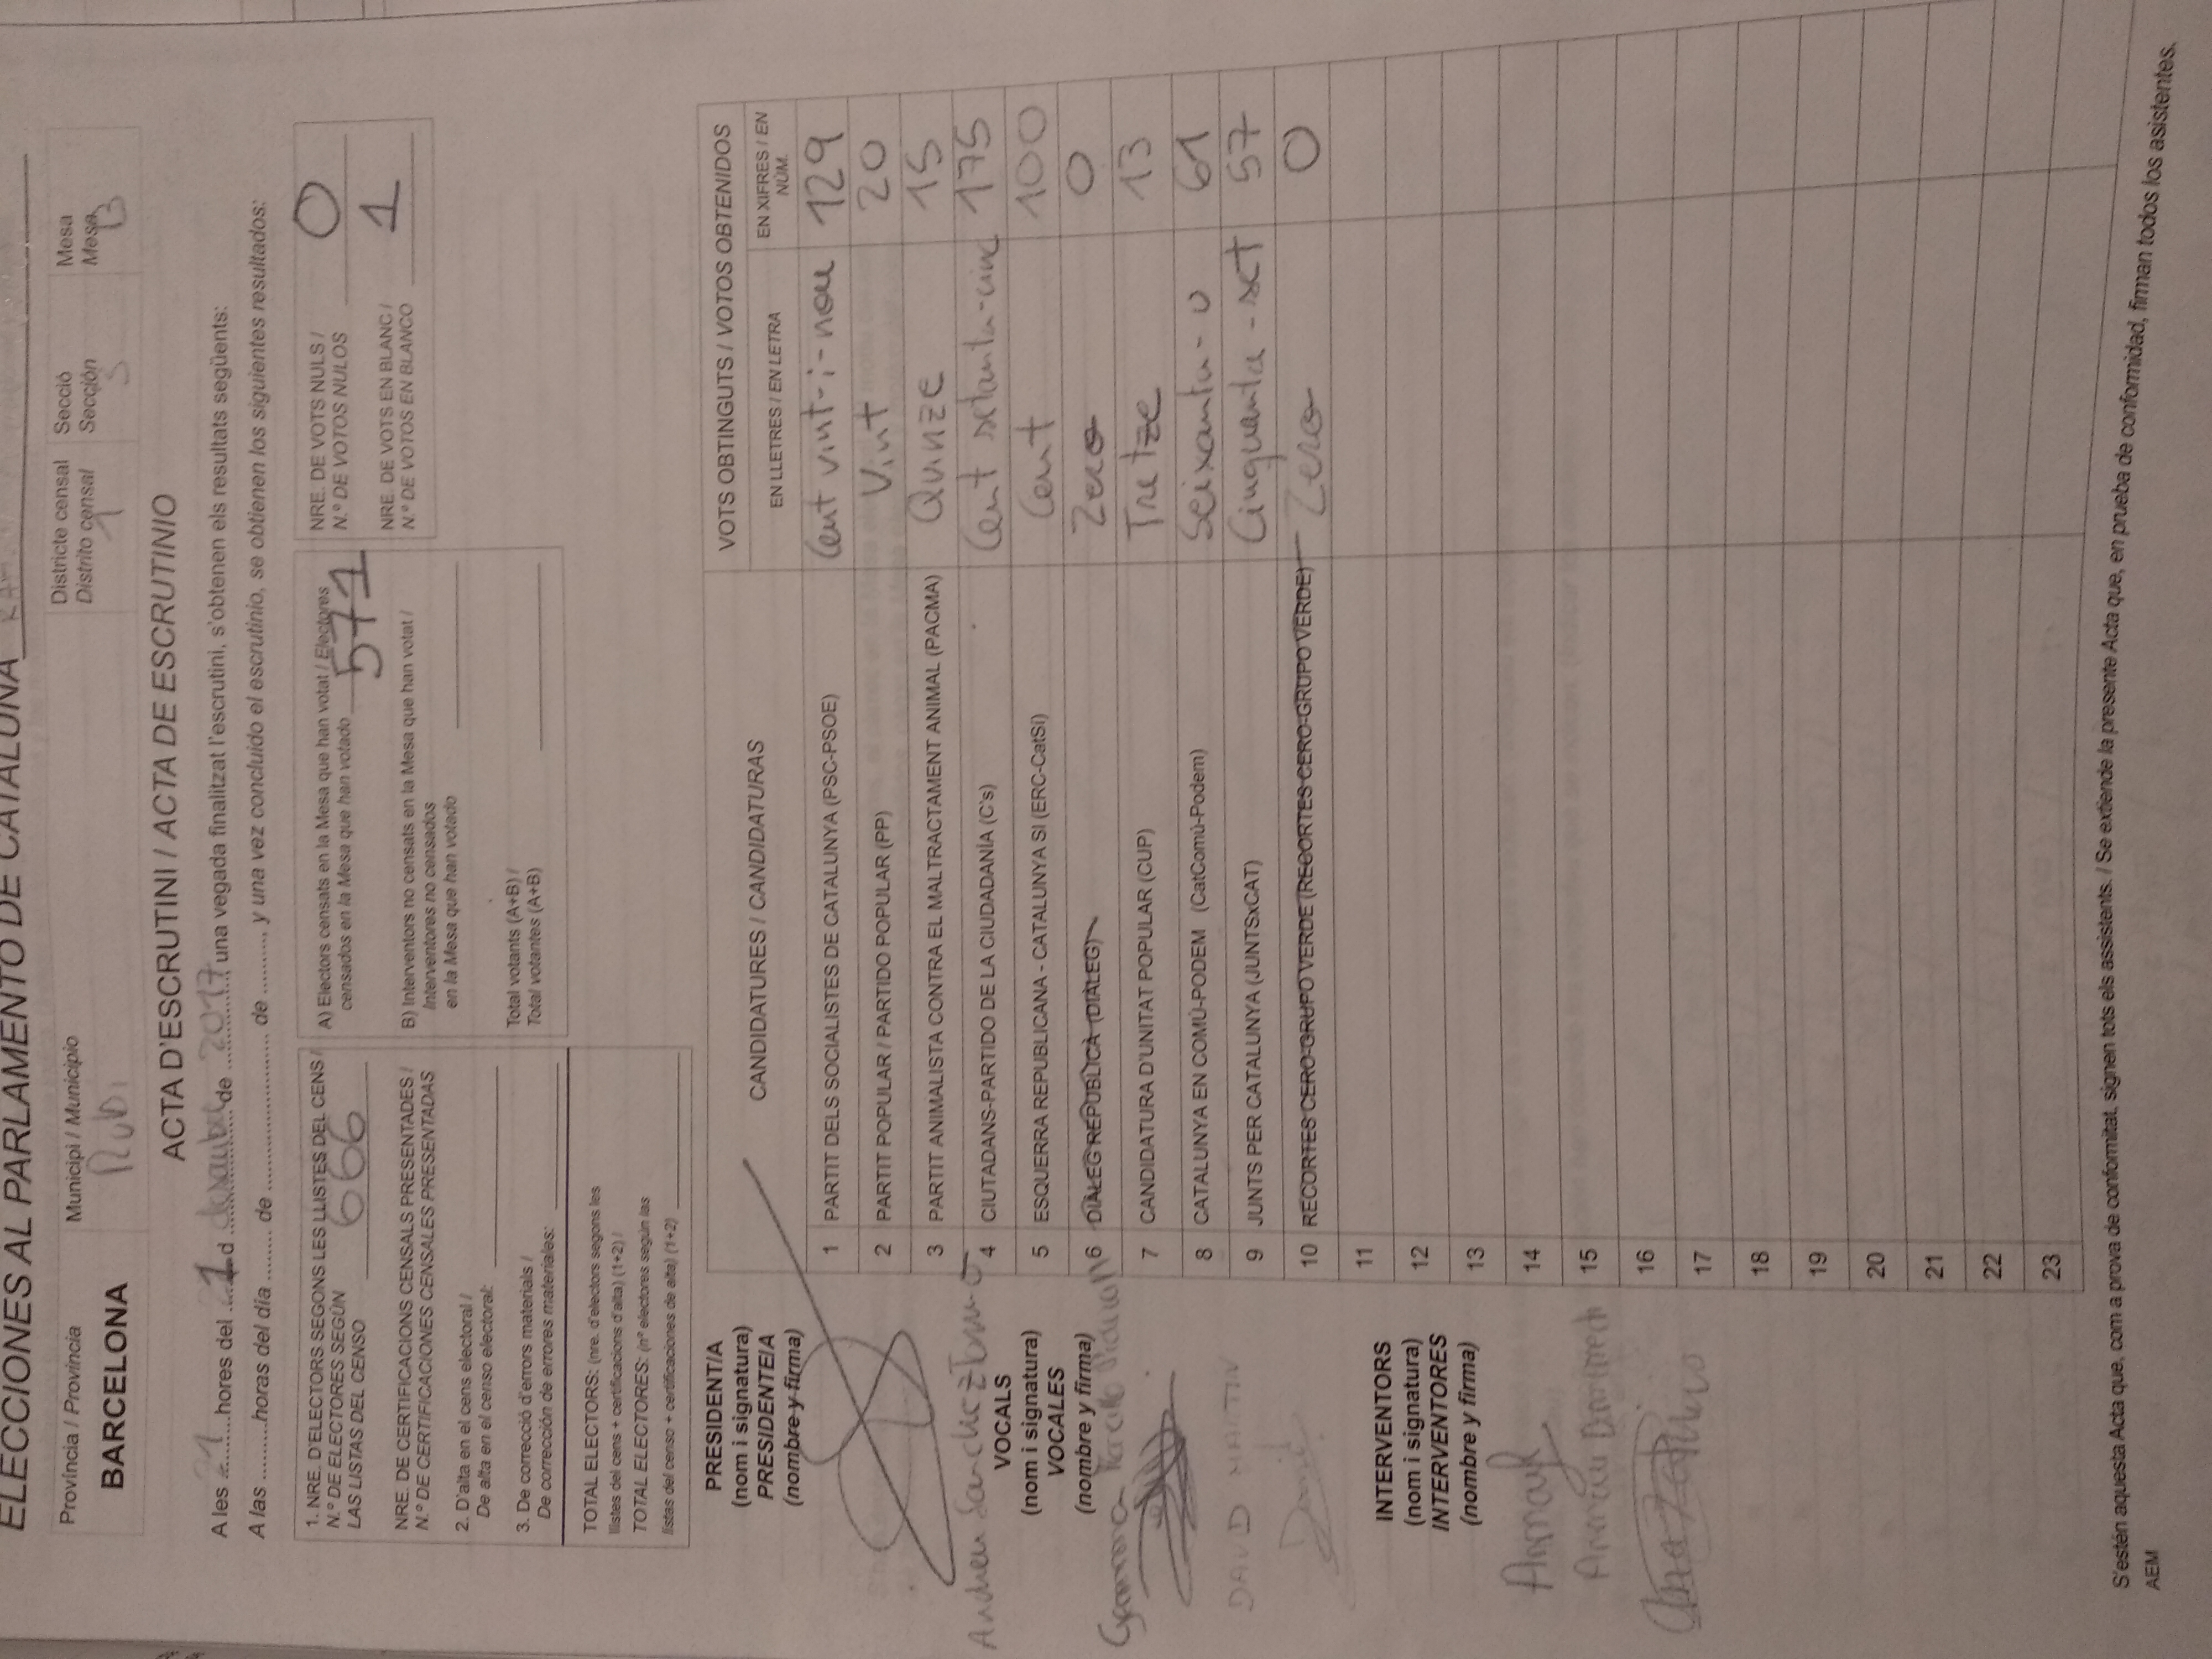 ELECCIONES AL PARLAMENTO DE CATALUÑA
Província / Provincia
BARCELONA
Municipi / Municipio
Rubi
Districte censal
Distrito censal
1
Secció
Sección
3
Mesa
Mesa
B
ACTA D'ESCRUTINI / ACTA DE ESCRUTINIO
A les 21 hores del 21 d desembre de 2017, una vegada finalitzat l'escrutini, s'obtenen els resultats següents:
A las .........horas del día ........ de ......................... de ........., y una vez concluido el escrutinio, se obtienen los siguientes resultados:
1. NRE. D'ELECTORS SEGONS LES LLISTES DEL CENS /
N.º DE ELECTORES SEGÚN
LAS LISTAS DEL CENSO 666
NRE. DE CERTIFICACIONS CENSALS PRESENTADES /
N.º DE CERTIFICACIONES CENSALES PRESENTADAS
2. D'alta en el cens electoral /
De alta en el censo electoral:
3. De correcció d'errors materials /
De corrección de errores materiales:
TOTAL ELECTORS: (nre. d'electors segons les
llistes del cens + certificacions d'alta) (1+2) /
TOTAL ELECTORES: (nº electores según las
listas del censo + certificaciones de alta) (1+2)
A) Electors censats en la Mesa que han votat / Electores
censados en la Mesa que han votado 571
B) Interventors no censats en la Mesa que han votat /
Interventores no censados
en la Mesa que han votado
Total votants (A+B) /
Total votantes (A+B)
NRE. DE VOTS NULS /
N.º DE VOTOS NULOS 0
NRE. DE VOTS EN BLANC /
N.º DE VOTOS EN BLANCO 1
PRESIDENT/A
(nom i signatura)
PRESIDENTE/A
(nombre y firma)
Andreu Sanchez
VOCALS
(nom i signatura)
VOCALES
(nombre y firma)
DAVID MARTIN
David
INTERVENTORS
(nom i signatura)
INTERVENTORES
(nombre y firma)
CANDIDATURES / CANDIDATURAS
VOTS OBTINGUTS / VOTOS OBTENIDOS
EN LLETRES / EN LETRA
EN XIFRES / EN
NÚM.
1 PARTIT DELS SOCIALISTES DE CATALUNYA (PSC-PSOE) Cent vint-i-nou 129
2 PARTIT POPULAR / PARTIDO POPULAR (PP) Vint 20
3 PARTIT ANIMALISTA CONTRA EL MALTRACTAMENT ANIMAL (PACMA) Quinze 15
4 CIUTADANS-PARTIDO DE LA CIUDADANÍA (C's) Cent setanta-cinc 175
5 ESQUERRA REPUBLICANA - CATALUNYA SI (ERC-CatSí) Cent 100
6 DIÀLEG REPUBLICÀ (DIÀLEG) Zero 0
7 CANDIDATURA D'UNITAT POPULAR (CUP) Tretze 13
8 CATALUNYA EN COMÚ-PODEM (CatComú-Podem) Seixanta-u 61
9 JUNTS PER CATALUNYA (JUNTSxCAT) Cinquanta-set 57
10 RECORTES CERO-GRUPO VERDE (RECORTES CERO-GRUPO VERDE) Zero 0
11
12
13
14
15
16
17
18
19
20
21
22
23
S'estén aquesta Acta que, com a prova de conformitat, signen tots els assistents. / Se extiende la presente Acta que, en prueba de conformidad, firman todos los asistentes.
AEM